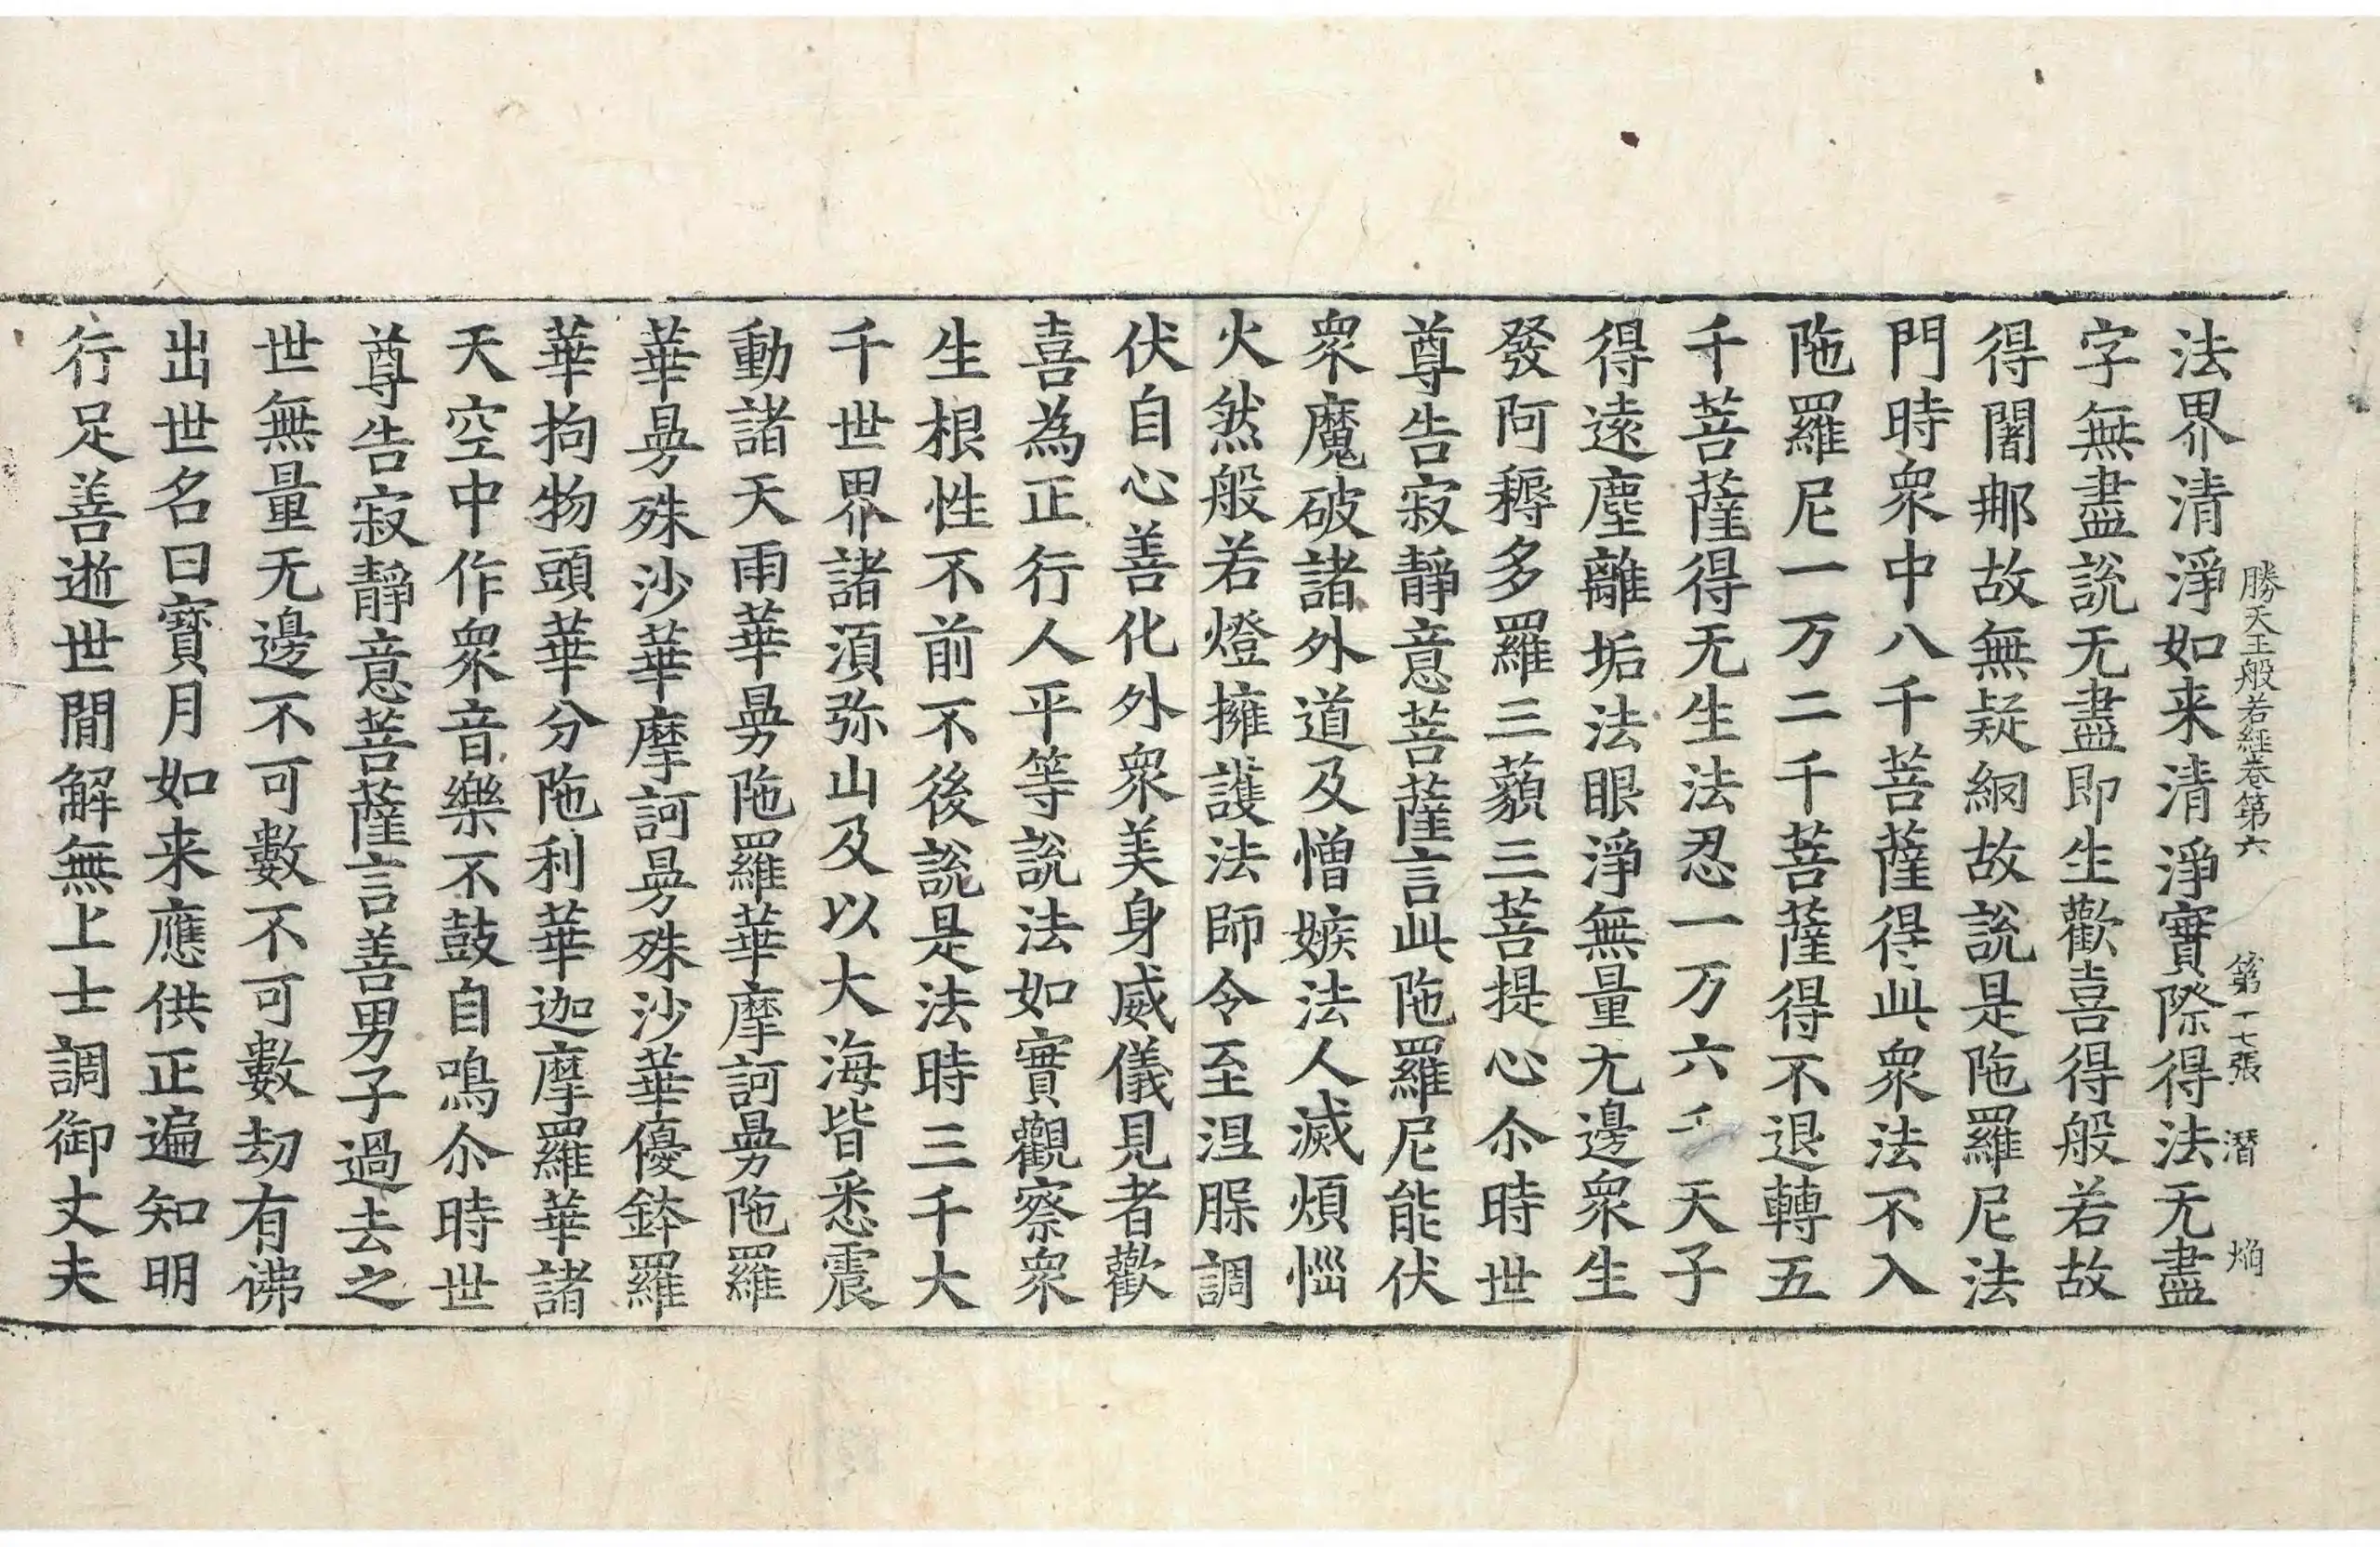 勝天王般若經卷第六 第十七張 潛
法界清淨如来清淨實際得法无盡
字無盡說无盡即生歡喜得般若故
得闍那故無疑網故說是陁羅尼法
門時衆中八千菩薩得此衆法不入
陁羅尼一万二千菩薩得不退轉五
千菩薩得无生法忍一万六千天子
得遠塵離垢法眼淨無量无邊衆生
發阿耨多羅三藐三菩提心尒時世
尊告寂靜意菩薩言此陁羅尼能伏
衆魔破諸外道及憎嫉法人滅煩惱
火然般若燈擁護法師令至涅槃調
伏自心善化外衆美身威儀見者歡
喜為正行人平等說法如實觀察衆
生根性不前不後說是法時三千大
千世界諸湏弥山及以大海皆悉震
動諸天雨華曼陁羅華摩訶曼陁羅
華曼殊沙華摩訶曼殊沙華優鉢羅
華拘物頭華分陁利華迦摩羅華諸
天空中作衆音樂不鼓自鳴尒時世
尊告寂靜意菩薩言善男子過去之
世無量无邊不可數不可數劫有佛
出世名曰寶月如来應供正遍知明
行足善逝世間解無上士調御丈夫